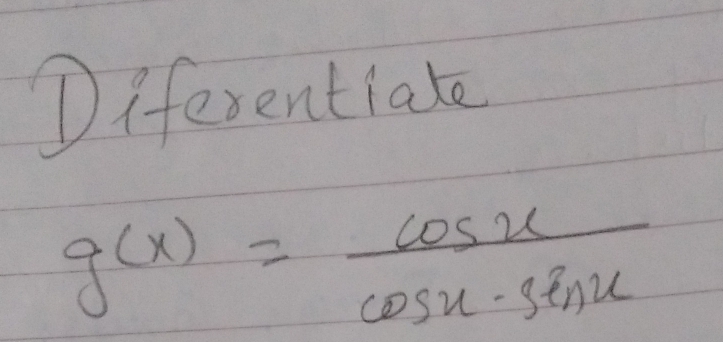 Diferentiate
g(x) = cosx / cosx - sinx